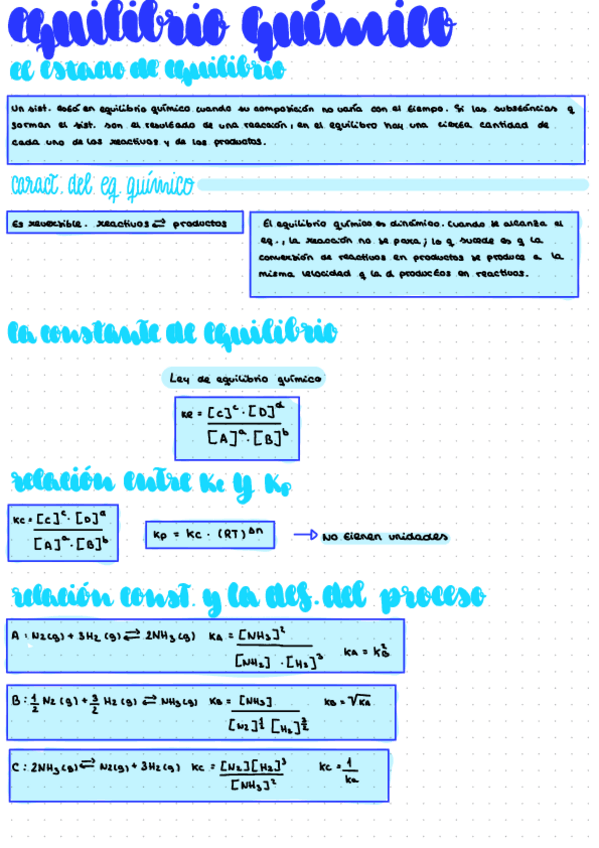 equilibrio químico
el estado de equilibrio
Un sist. está en equilibrio químico cuando su composición no varía con el tiempo. Si las substáncias q
forman el sist. son el resultado de una reacción, en el equilibro hay una cierta cantidad de
cada uno de los reactivos y de los productos.
caract. del eq. químico
Es reversible. reactivos ⇄ productos
El equilibrio químico es dinámico. Cuando se alcanza el
eq., la reacción no se para; lo q sucede es q la
conversión de reactivos en productos se produce a la
misma velocidad q la d productos en reactivos.
la constante de equilibrio
Ley de equilibrio químico
Ke = [C]^c · [D]^d / [A]^a · [B]^b
relación entre Kc y Kp
Kc = [C]^c · [D]^d / [A]^a · [B]^b
Kp = Kc · (RT)^Δn → No tienen unidades
relación const. y la def. del proceso
A: N2(g) + 3H2(g) ⇄ 2NH3(g) KA = [NH3]^2 / [NH2] · [H2]^3 KA = KB^2
B: 1/2 N2(g) + 3/2 H2(g) ⇄ NH3(g) KB = [NH3] / [N2]^1/2 [H2]^3/2 KB = √KA
C: 2NH3(g) ⇄ N2(g) + 3H2(g) KC = [N2][H2]^3 / [NH3]^2 KC = 1/KA